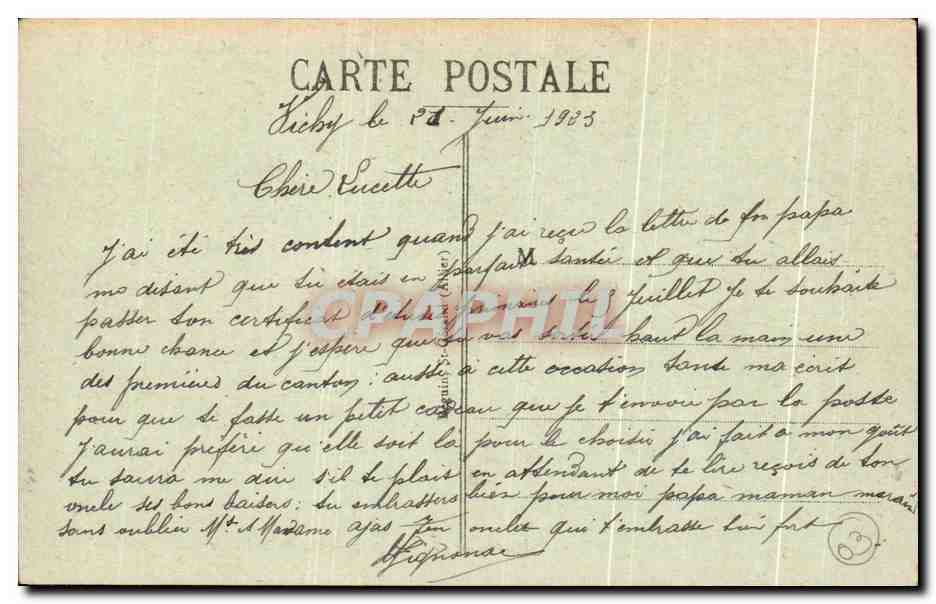 CARTE POSTALE
Vichy le 21 Juin 1933
Chère Lucette
J'ai été très content quand j'ai reçu la lettre de ton papa
me disant que tu étais en parfaite santée et que tu allais
passer ton certificat d'etude primaires le 3 Juillet Je te souhaite
bonne chance et j'espère que tu vas sortir haut la main une
des premières du canton: aussi à cette occasion Tante m'a écrit
pour que te fasse un petit cadeau que je t'envoie par la poste
J'aurai préféré qu'elle soit la pour le choisir j'ai fait a mon goût
tu saura me dire s'il te plait en attendant de te lire reçois de ton
oncle ses bons baisers: tu embrassera bien pour moi papa maman
sans oublier Mr et Madame Ton oncle qui t'embrasse bien fort
M
(Allier)
CPAPHIL
03